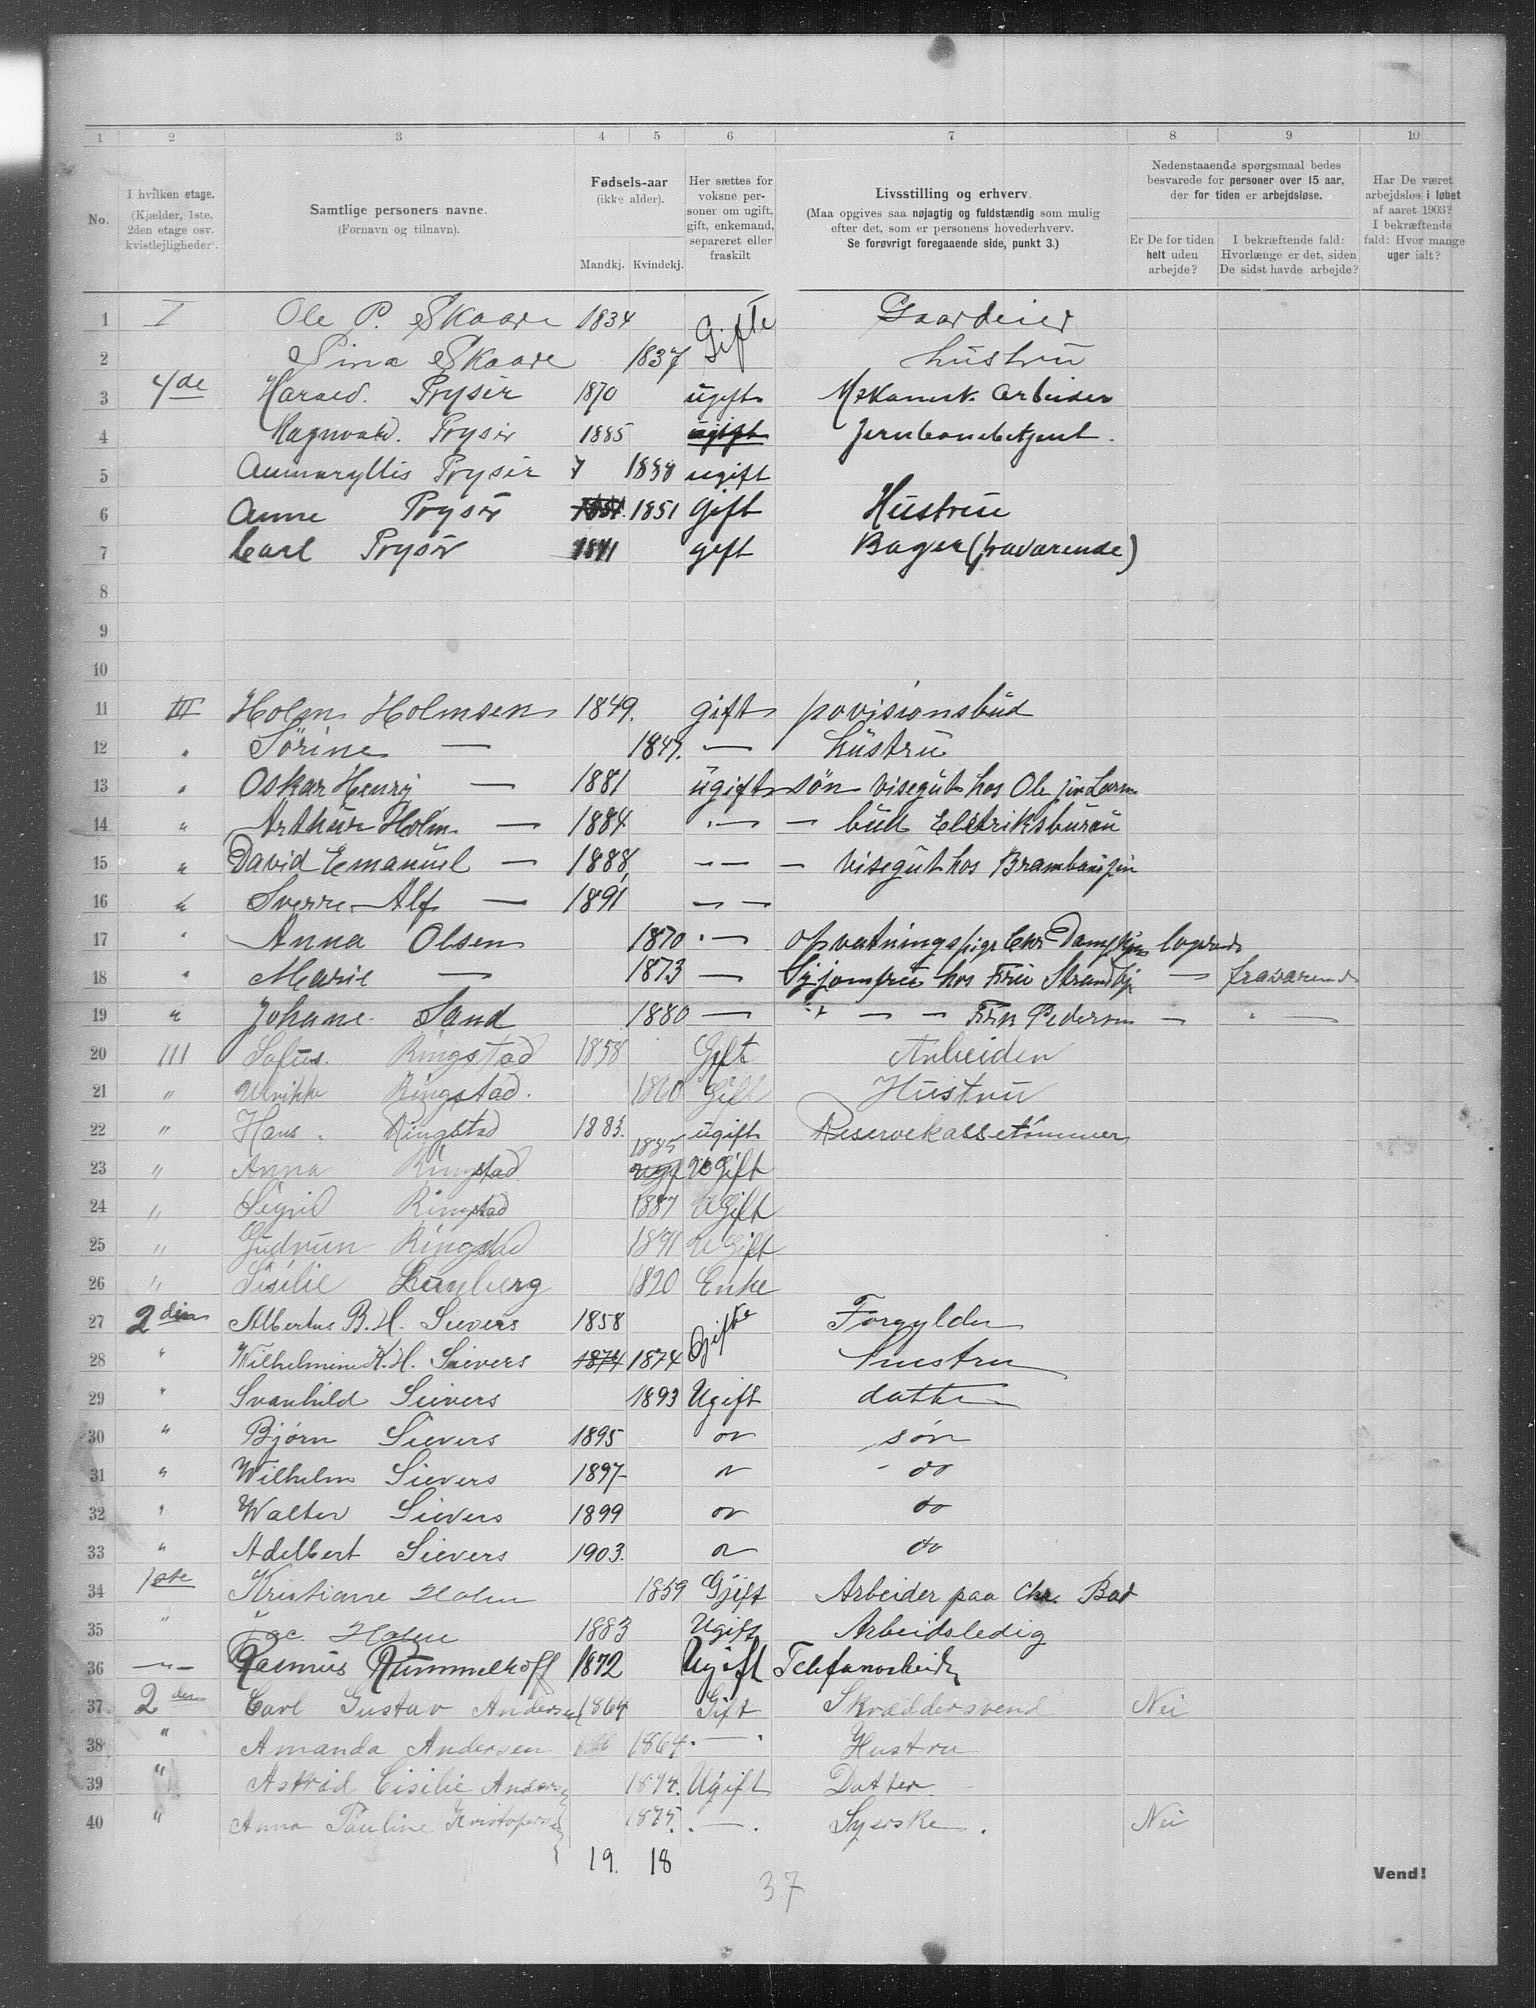 1 2 3 4 5 6 7 8 9 10
No.
I hvilken etage. (Kjælder, 1ste, 2den etage osv. kvistlejligheder).
Samtlige personers navne. (Fornavn og tilnavn).
Fødsels-aar (ikke alder).
Mandkj. Kvindekj.
Her sættes for voksne personer om ugift, gift, enkemand, separeret eller fraskilt
Livsstilling og erhverv.
(Maa opgives saa nøjagtig og fuldstændig som mulig efter det, som er personens hovederhverv.
Se forøvrigt foregaaende side, punkt 3.)
Nedenstaaende spørgsmaal bedes besvarede for personer over 15 aar, der for tiden er arbejdsløse.
Er De for tiden helt uden arbejde?
I bekræftende fald: Hvorlænge er det, siden De sidst havde arbejde?
Har De været arbejdsløs i løbet af aaret 1903? I bekræftende fald: Hvor mange uger ialt?
1 I Ole P. Skaare 1834 Gifte Gaardeier
2 Sina Skaare 1837 hustru
3 4de Harald. Prysir 1870 ugift Mekanisk Arbeider
4 Magnvald. Prysir 1885 ugift Jernbanebetjent.
5 Anmaryllis Prysir 1888 ugift
6 Anne Prysir 1851 Gift Hustrue
7 Carl Prysir 1841 gift Bager (fraværende)
8
9
10
11 III Holm Holmsen 1849. gift provisionsbud
12 " Sørine — 1847. — hustru
13 " Oskar Henry — 1881 ugift søn visegut hos Ole
14 " Arthur Holm — 1884 — — bud Elektriksbureau
15 " David Emanuel — 1888 — — visegut hos
16 " Sverre Alf — 1891 — —
17 " Anna Olsen 1870 —
18 " Marie — 1873 — Syjomfru hos Fru — fraværend
19 " Johane Sand 1880 — " — — Frk Pedersen — " —
20 III Sofus. Ringstad 1858 Gift Arbeider
21 " Ulrikke Ringstad. 1860 Gift Hustru
22 " Hans. Ringstad 1883. ugift
23 " Anna Ringstad 1885 UGift
24 " Sigrid Ringstad 1887 UGift
25 " Gudrun Ringstad 1891 UGift
26 " Sisilie Lumberg 1820 Enke
27 2den Albertus B. H. Sievers 1858 Gifte Forgylder
28 " Wilhelmine K. H. Sievers 1874 1874 Hustru
29 " Svanhild Sievers 1893 Ugift datter
30 " Bjørn Sievers 1895 do søn
31 " Wilhelm Sievers 1897 do - do
32 " Walter Sievers 1899 do do
33 " Adelbert Sievers 1903. do do
34 1ste Kristiane Holm 1859 Gjift Arbeider paa Chr. Bad
35 " Jac. Holm 1883 Ugift Arbeidsledig
36 —"— Rasmus Rummelhoff 1872 Ugift Telefonarbeider
37 2den Carl Gustav Andersen 1864 Gift Skræddersvend Nei
38 " Amanda Andersen 1864. — Hustru
39 " Astrid Cisilie Anders 1894. Ugift Datter
40 " Anna Pauline Kristofers 1875. — Syerske. Nei
19. 18
37
Vend!